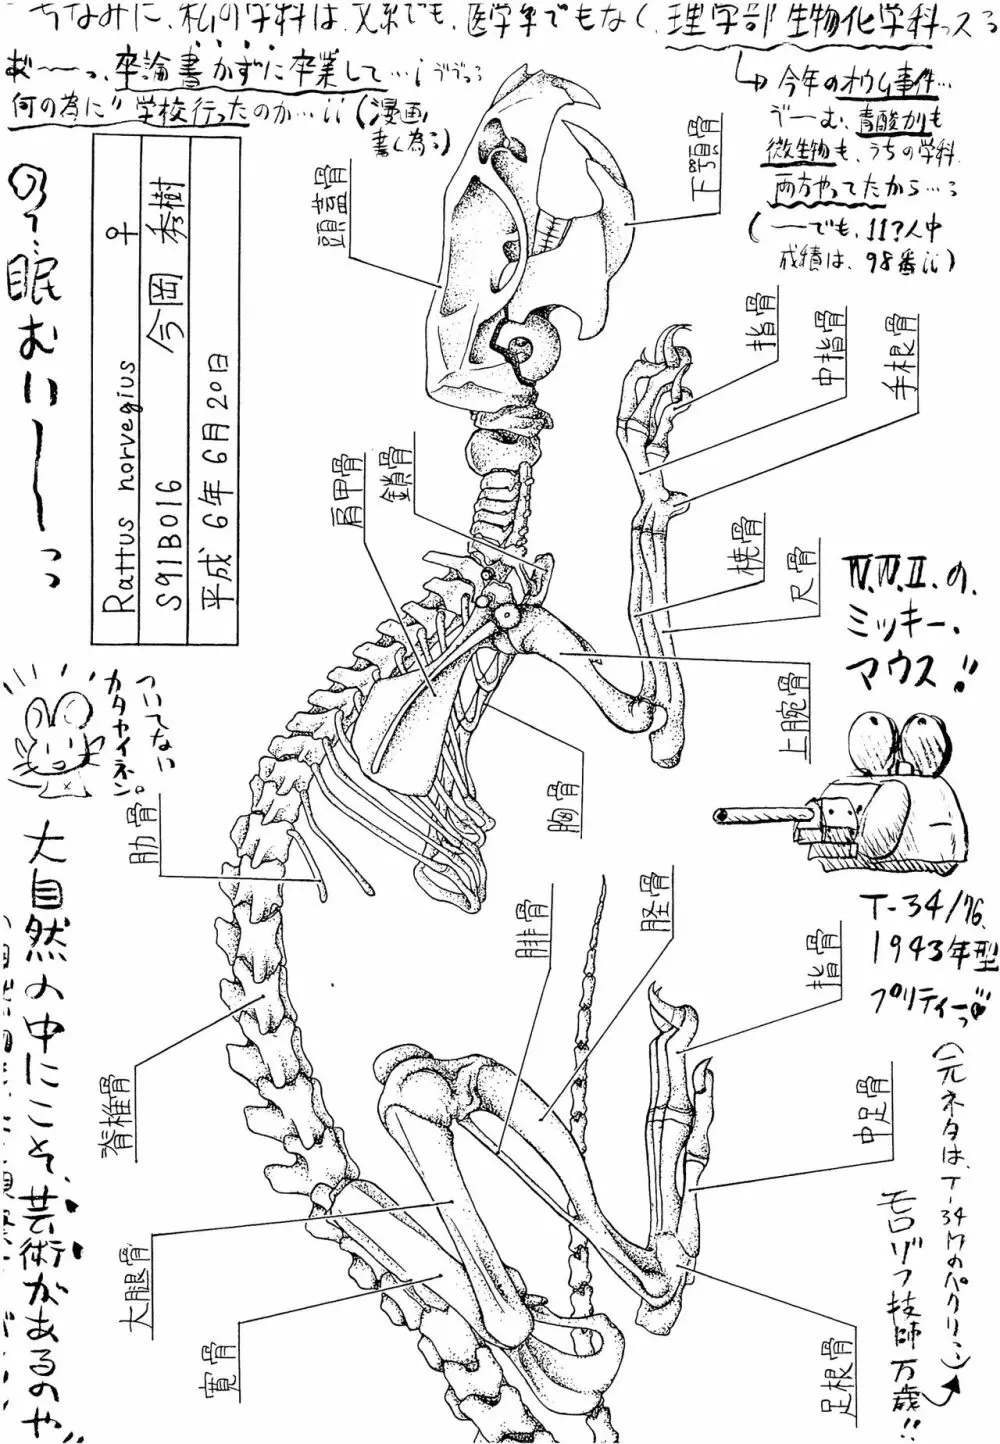 ちなみに、私の学科は、文系でも、医学系でもなく、理学部生物化学科っス
卒論書かずに卒業して…
何の為に学校行ったのか…(漫画
書く為)
今年のオウム事件…
うーむ、青酸カリも
微生物も、うちの学科
両方やってたから…
(ーでも、11?人中
成績は、98番)
眠むいーーっっ
Rattus norvegius ♀
S91B016 今岡 秀樹
平成 6年 6月 20日
頭蓋骨
下顎骨
指骨
中指骨
手根骨
肩甲骨
鎖骨
橈骨
尺骨
上腕骨
胸骨
肋骨
W.W.Ⅱ.の
ミッキー・
マウス!!
ついてない
カタヤイネン。
T-34/76.
1943年型
プリティーっ
腓骨
脛骨
指骨
脊椎骨
中足骨
大腿骨
寛骨
足根骨
大自然の中にこそ、芸術があるのや"
(元ネタは、T-34Mのパクリ)
モロゾフ技師万歳!!